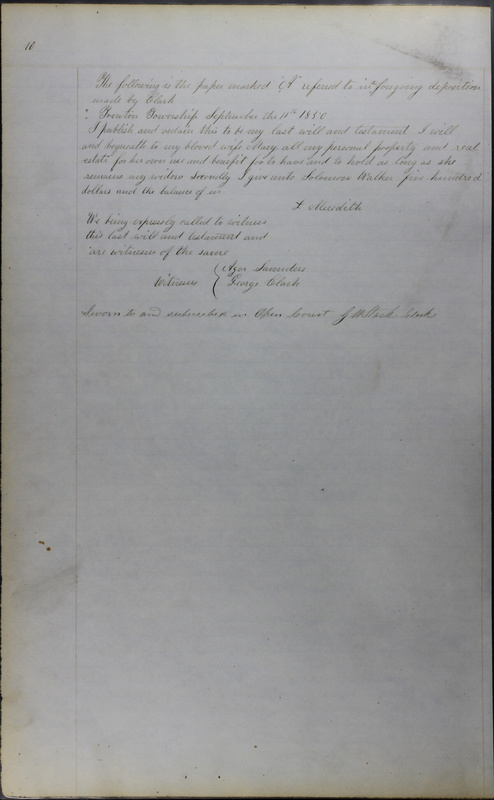 10
The following is the paper marked "A" referred to in the foregoing deposition
made by Clark
Township September the 11th 1850
I publish and ordain this to be my last will and testament I will
and bequeath to my beloved wife Mary all my personal property and real
estate for her own use and benefit for to have and to hold as long as she
remains my widow Secondly I give unto Solomon Walker five hundred
dollars and the balance of
Meredith
We being expressly called to witness
this last will and testament and
are witnesses of the same
Witnesses { Azor Saunders
George Clark
Sworn to and subscribed in Open Court Clerk